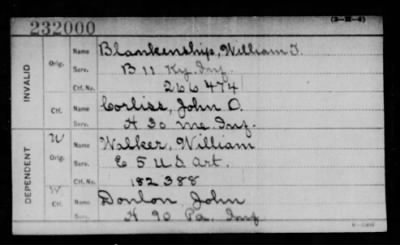 (3-M-4)
232000
INVALID
Orig.
Name Blankenship, William T.
Serv. B 11 Ky. Inf.
Ctf. No. 266474
Ctf. Name Corliss, John O.
A 30 Me. Inf.
DEPENDENT
W Orig.
Name Walker, William
Serv. E 5 U S Art.
Ctf. No. 182388
W Ctf. Name Donlon, John
Serv. A 90 Pa. Inf